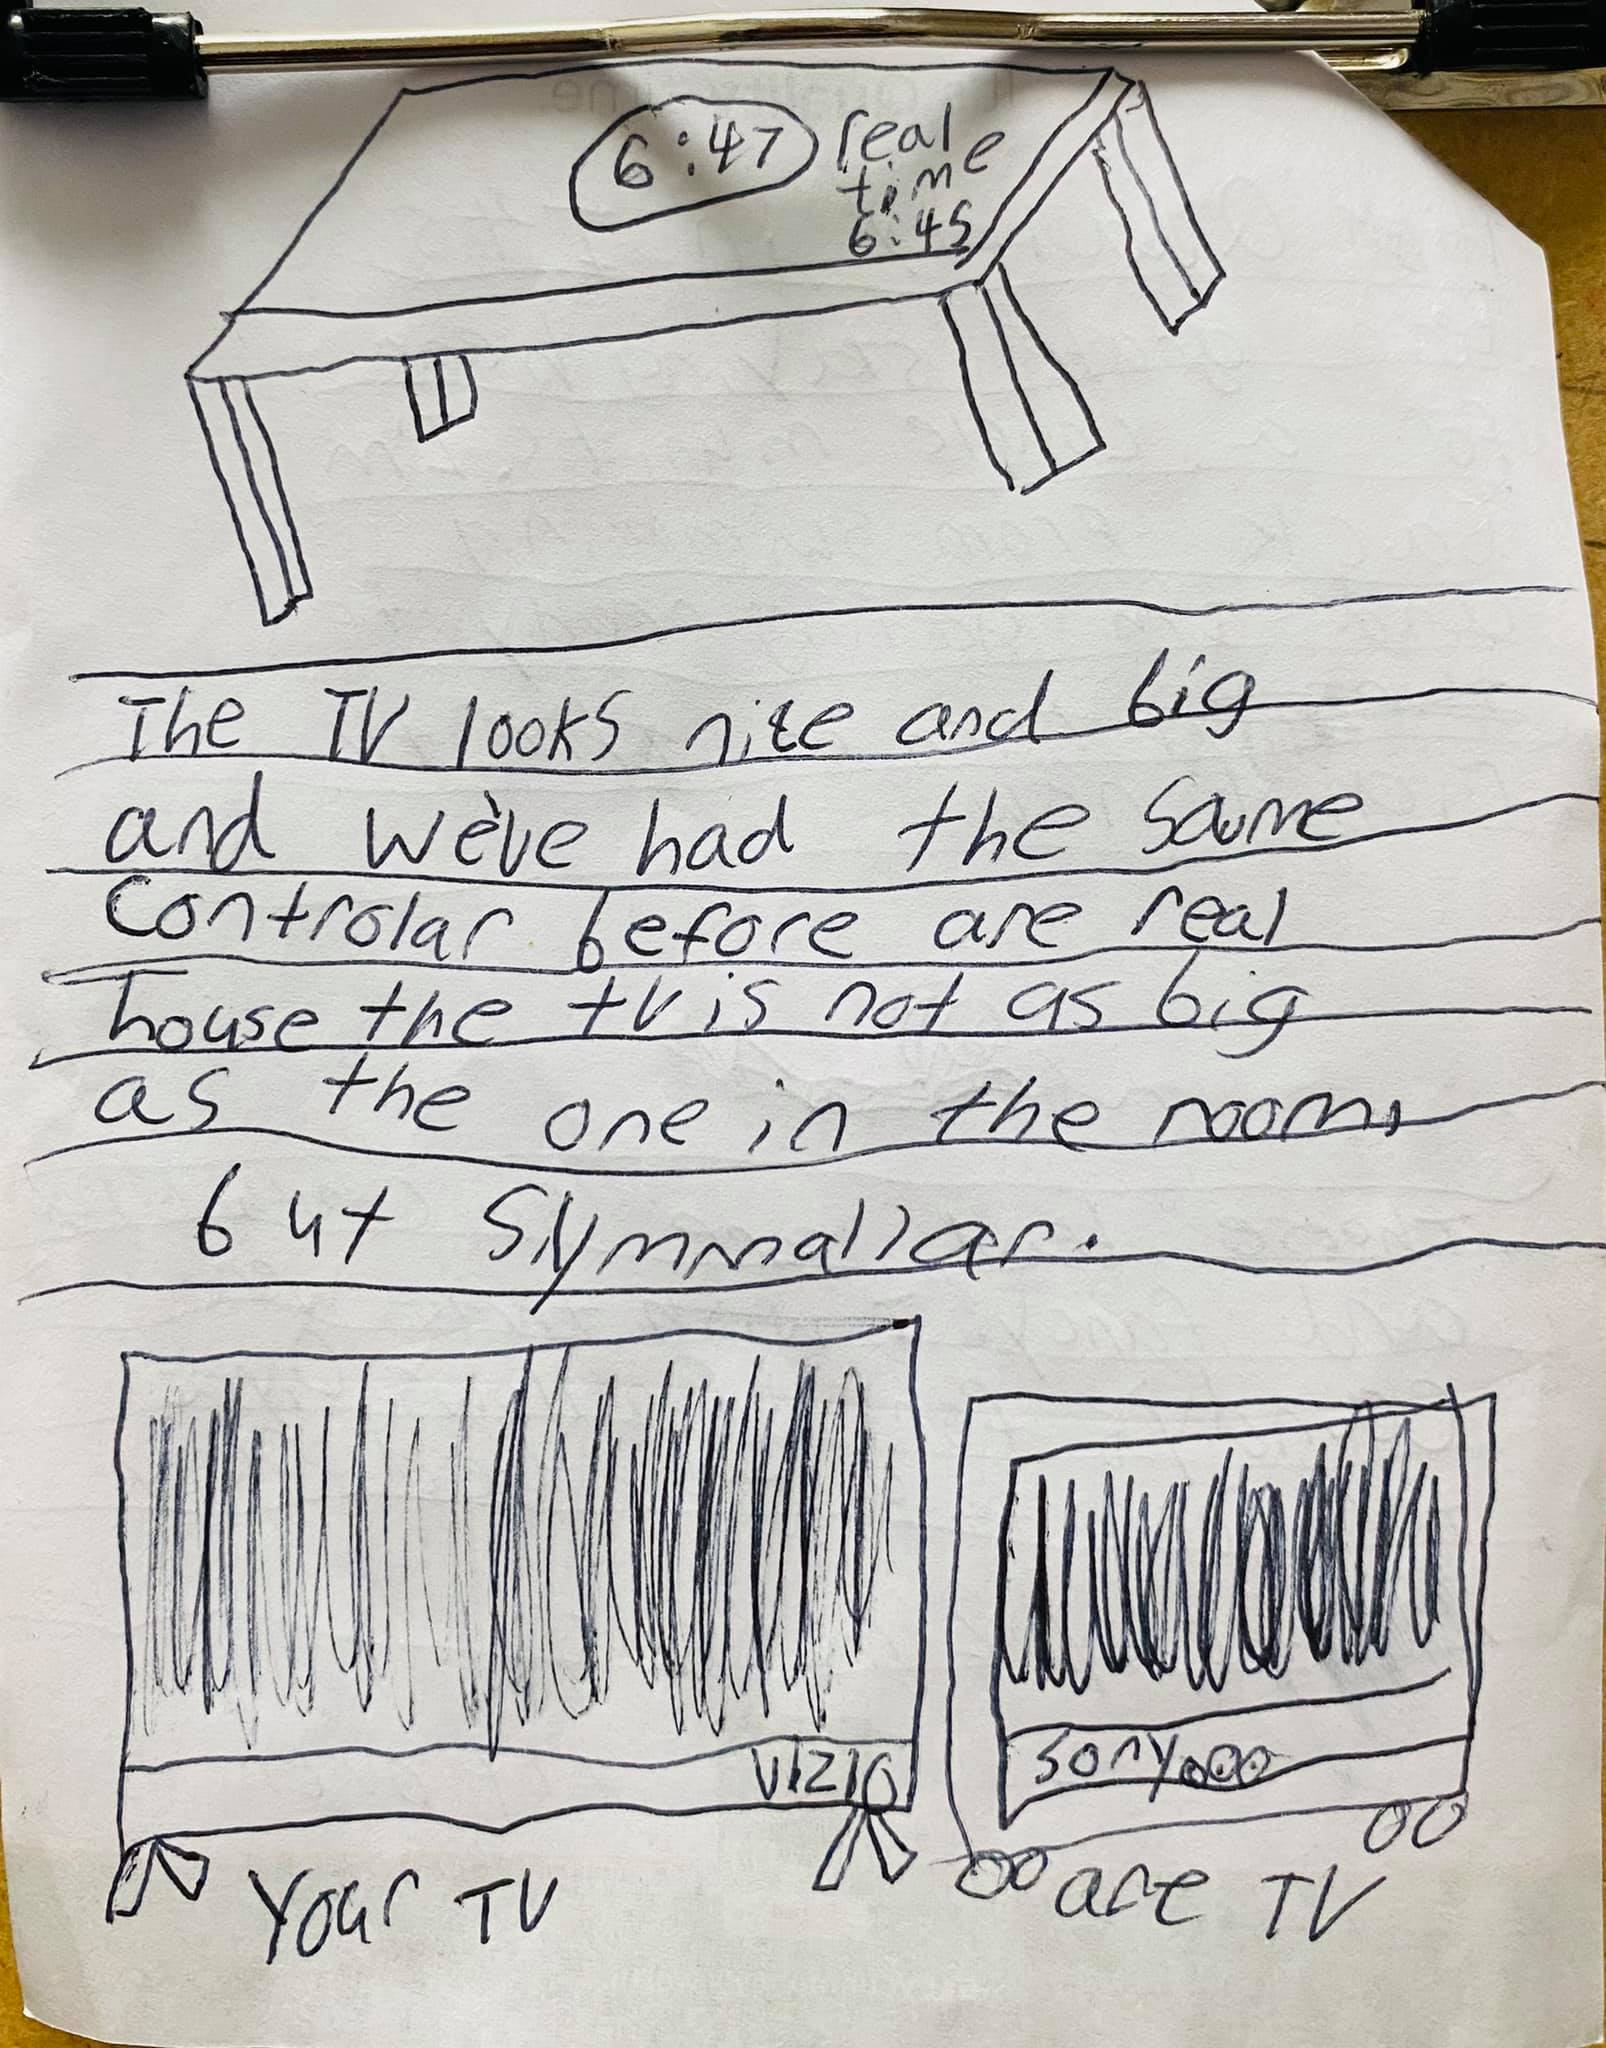 6:47
real
time
6:45
The TV looks nice and big
and we've had the same
Controlar before are real
house the tv is not as big
as the one in the room,
but Slymmaliar.
VIZIO
Sony
Your TV
are TV